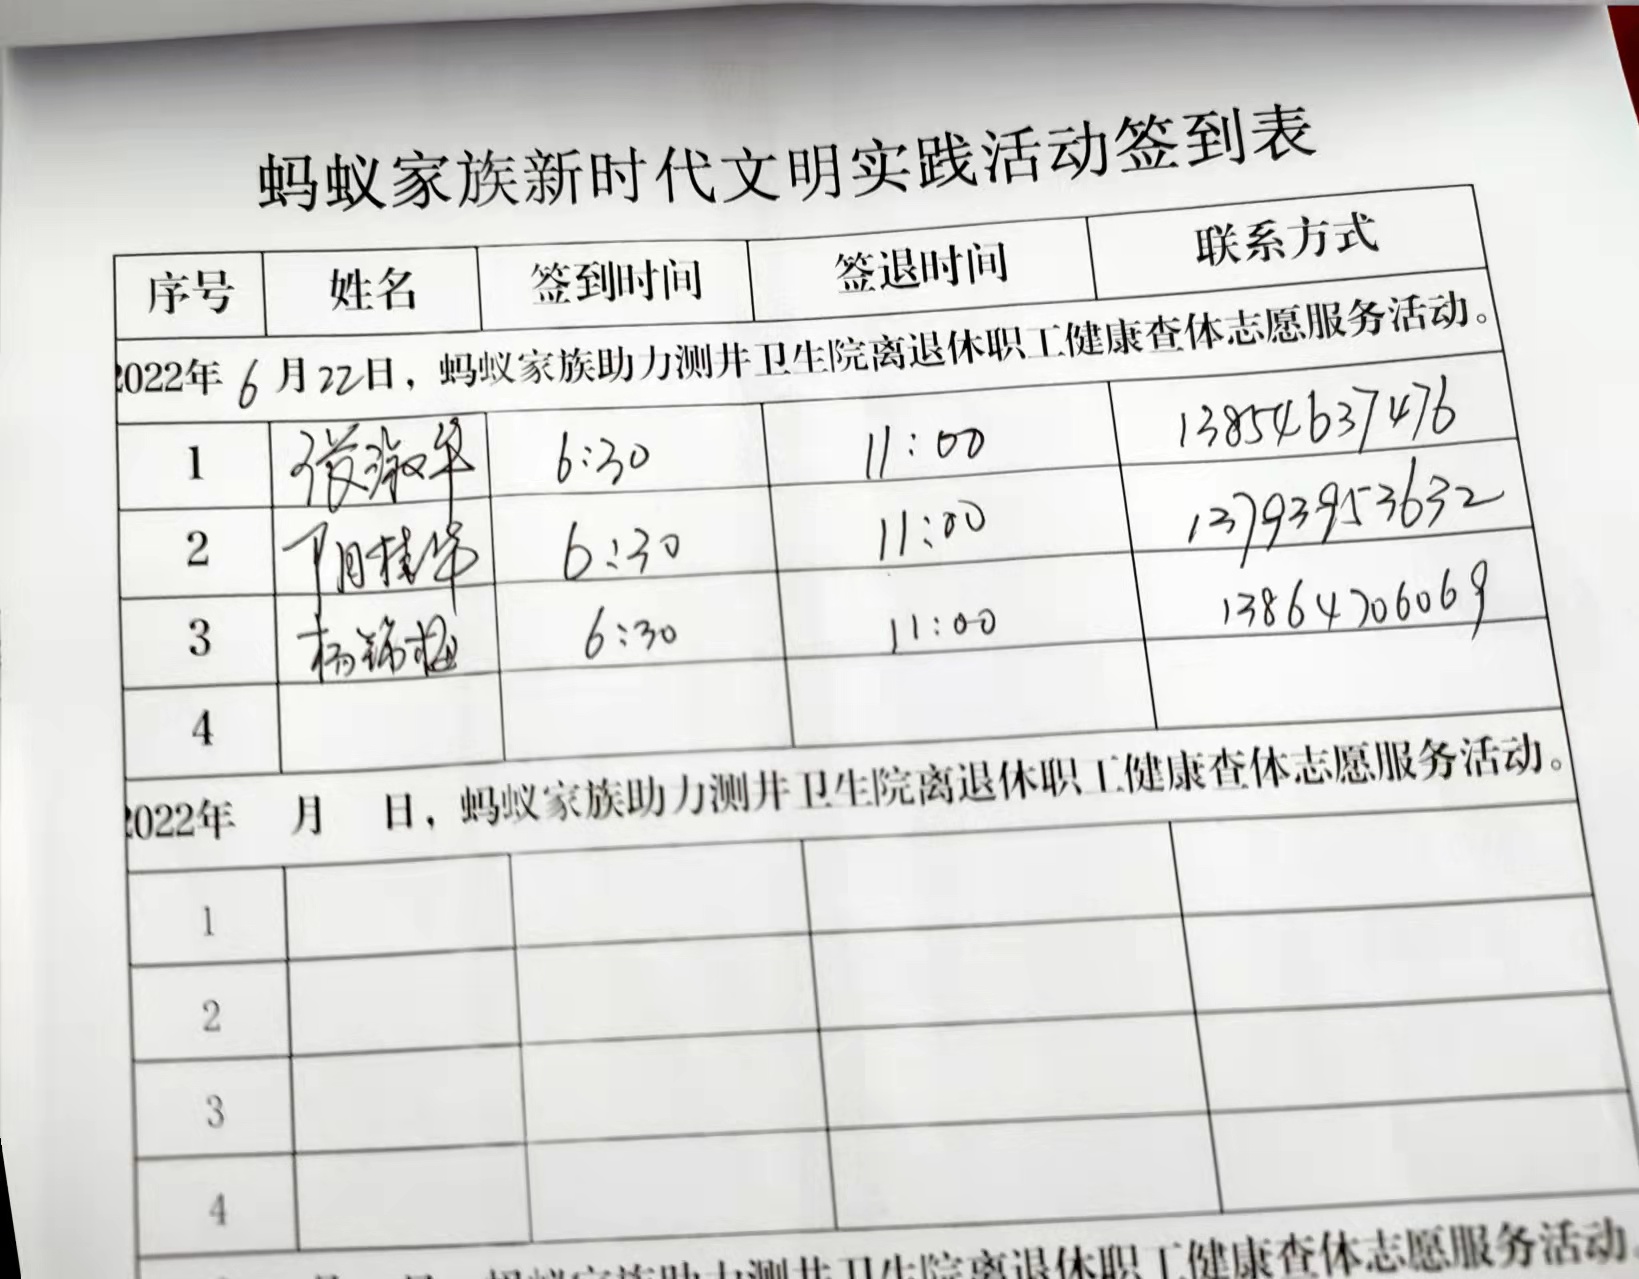 蚂蚁家族新时代文明实践活动签到表
序号 姓名 签到时间 签退时间 联系方式
2022年6月22日，蚂蚁家族助力测井卫生院离退休职工健康查体志愿服务活动。
1 张淑华 6:30 11:00 13854637476
2 阴桂华 6:30 11:00 13793953632
3 杨锦梅 6:30 11:00 13864706069
4
2022年 月 日，蚂蚁家族助力测井卫生院离退休职工健康查体志愿服务活动。
1
2
3
4
月 日，蚂蚁家族助力测井卫生院离退休职工健康查体志愿服务活动。